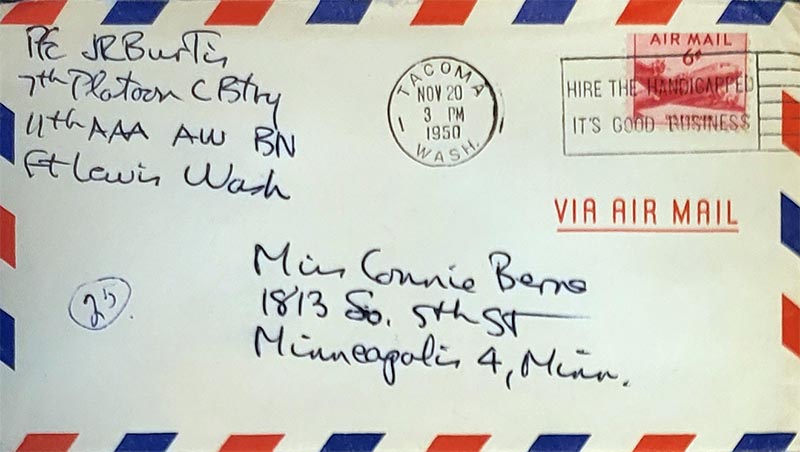 Pfc JR Burtis
7th Platoon C Btry
11th AAA AW BN
Ft Lewis Wash
TACOMA
NOV 20
3 PM
1950
WASH.
AIR MAIL
6¢
HIRE THE HANDICAPPED
IT'S GOOD BUSINESS
VIA AIR MAIL
Miss Connie Berno
1813 So. 5th St
Minneapolis 4, Minn.
25